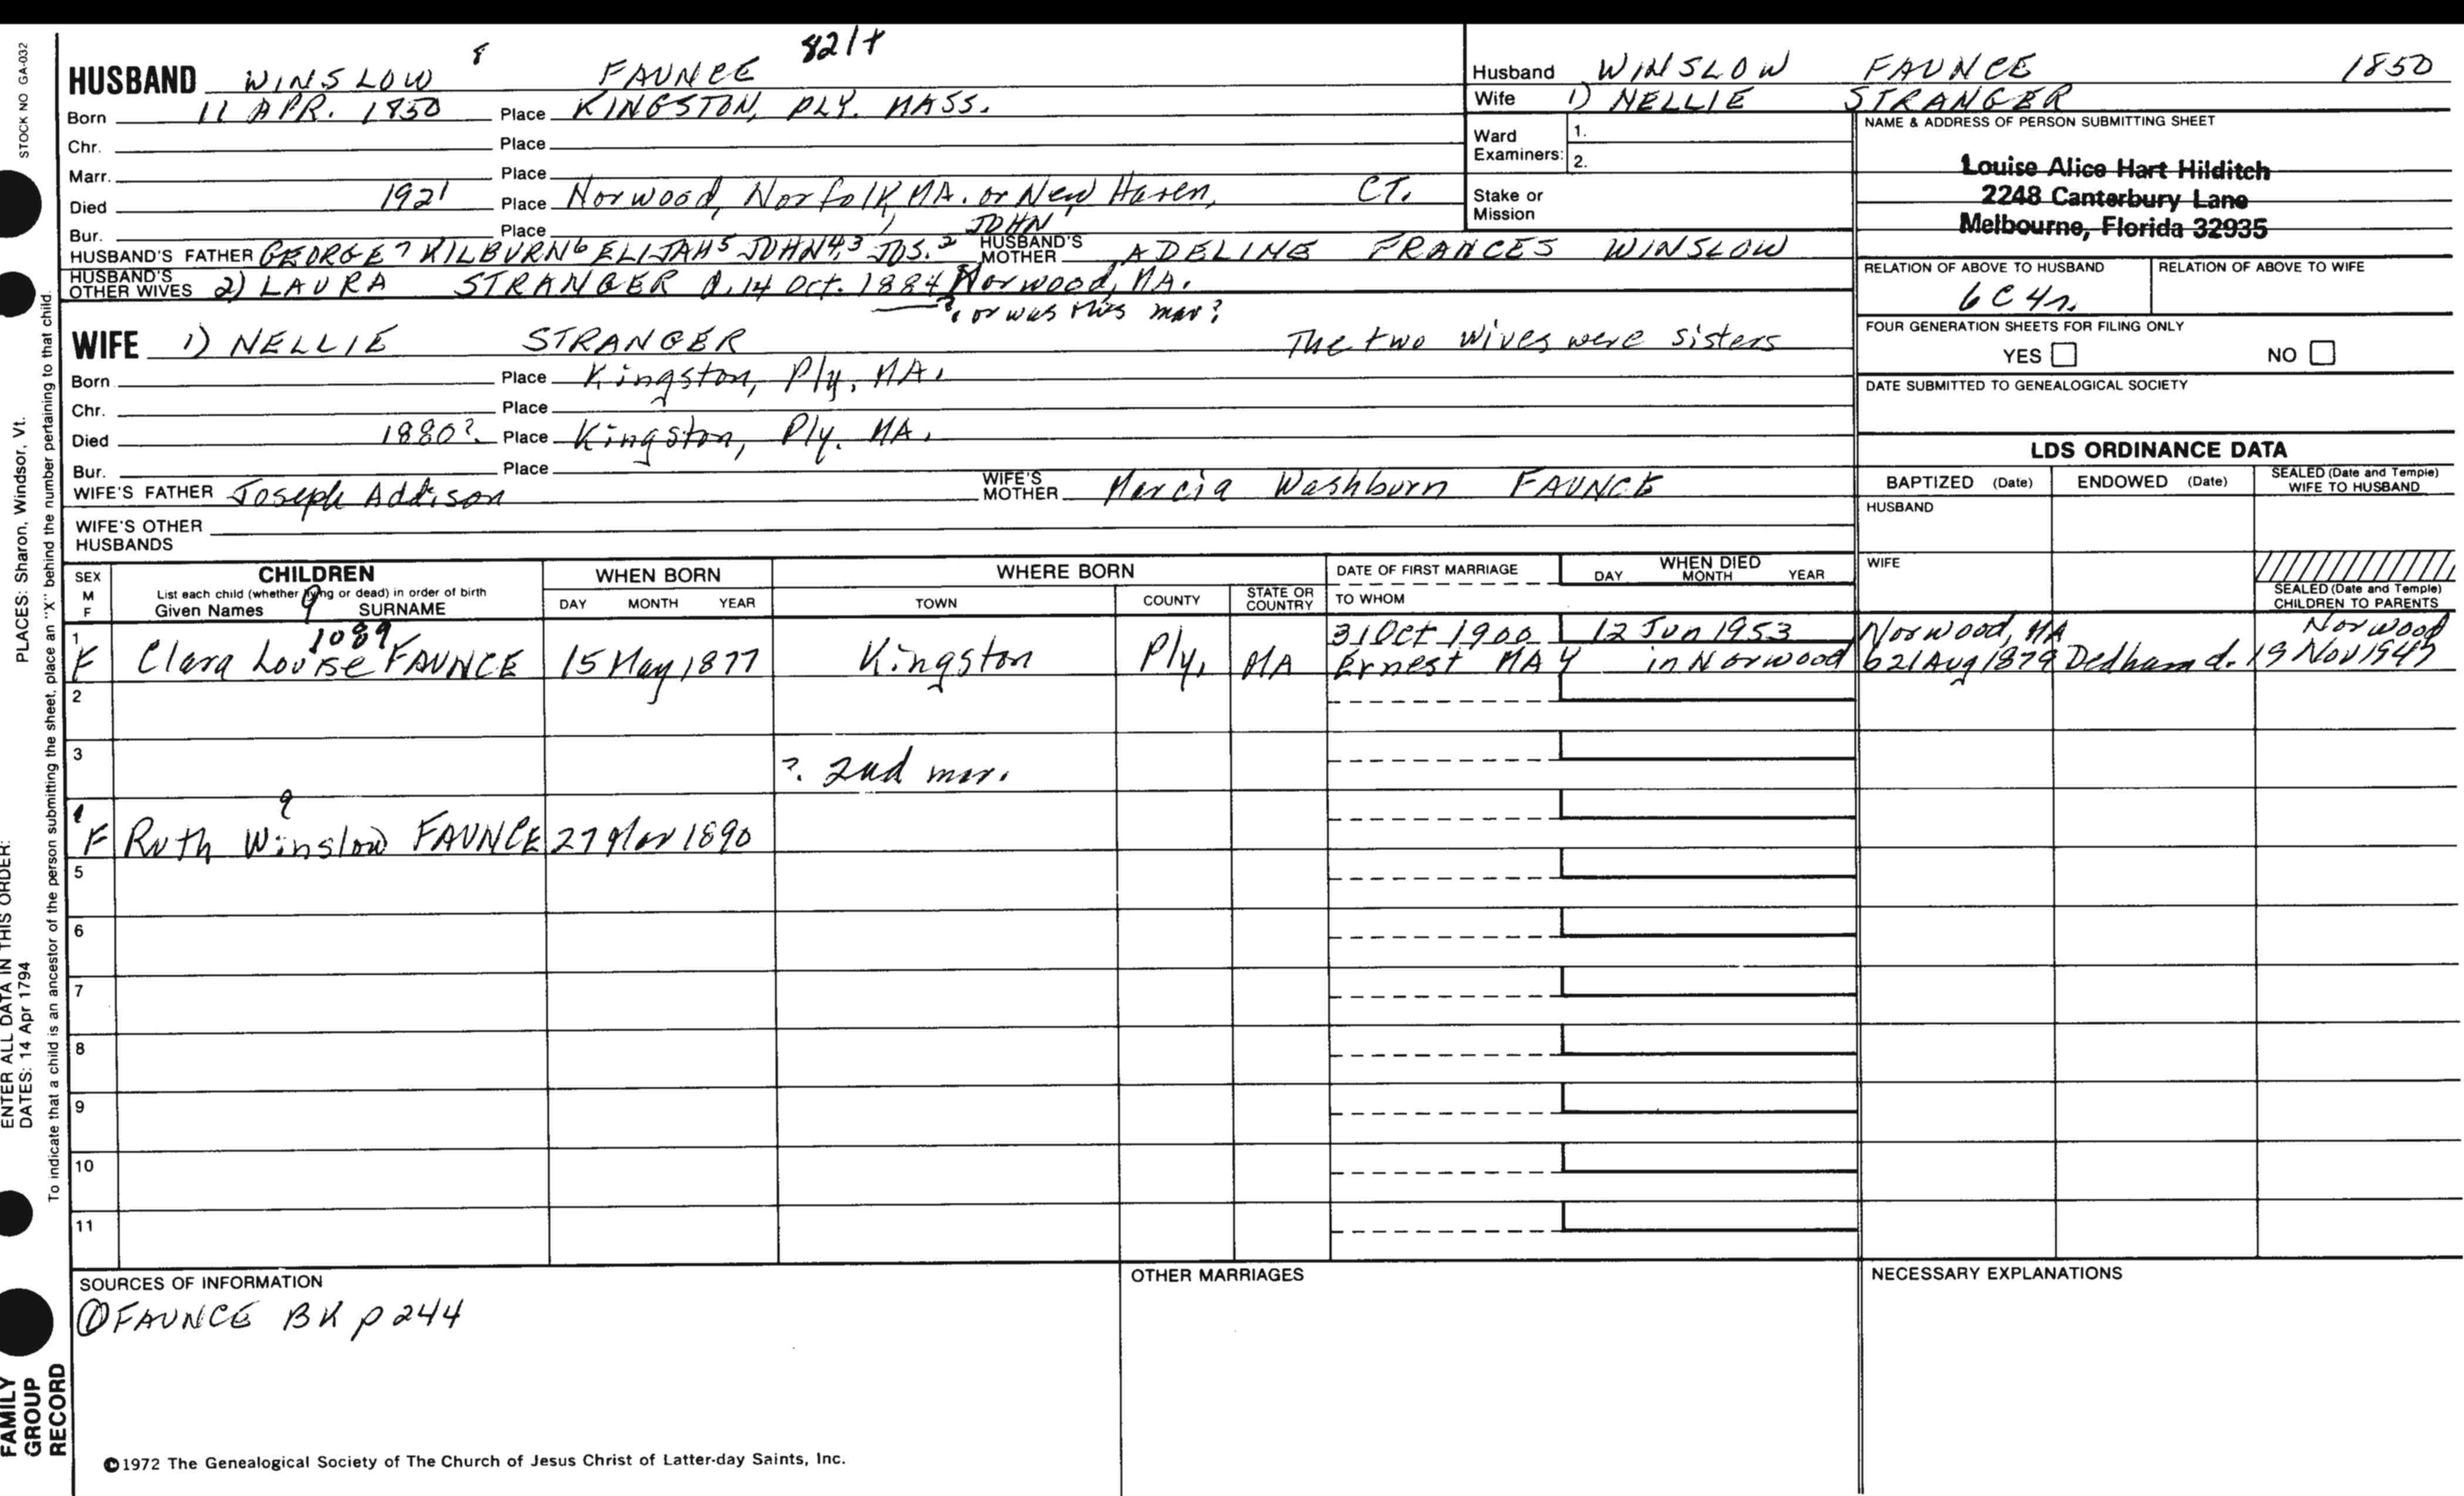 8 821+
HUSBAND WINSLOW FAUNCE
Born 11 APR. 1850 Place KINGSTON, PLY. MASS.
Chr. Place
Marr. Place
Died 1921 Place Norwood, Norfolk, MA. or New Haven, CT.
Bur. Place
JOHN 1
HUSBAND'S FATHER GEORGE 7 KILBURN 6 ELIJAH 5 JOHN 4,3 JOS. 2 HUSBAND'S MOTHER ADELINE FRANCES WINSLOW
HUSBAND'S OTHER WIVES 2) LAURA STRANGER d. 14 Oct. 1884 Norwood, MA.
? or was this mar?
WIFE 1) NELLIE STRANGER The two wives were sisters
Born Place Kingston, Ply. MA.
Chr. Place
Died 1880? Place Kingston, Ply. MA.
Bur. Place
WIFE'S FATHER Joseph Addison WIFE'S MOTHER Marcia Washburn FAUNCE
WIFE'S OTHER HUSBANDS
Husband WINSLOW FAUNCE 1850
Wife 1) NELLIE STRANGER
Ward Examiners: 1.
2.
Stake or Mission
NAME & ADDRESS OF PERSON SUBMITTING SHEET
Louise Alice Hart Hilditch
2248 Canterbury Lane
Melbourne, Florida 32935
RELATION OF ABOVE TO HUSBAND RELATION OF ABOVE TO WIFE
6C4r.
FOUR GENERATION SHEETS FOR FILING ONLY
YES NO
DATE SUBMITTED TO GENEALOGICAL SOCIETY
LDS ORDINANCE DATA
BAPTIZED (Date) ENDOWED (Date) SEALED (Date and Temple) WIFE TO HUSBAND
HUSBAND
WIFE
SEALED (Date and Temple) CHILDREN TO PARENTS
SEX M F
CHILDREN
List each child (whether living or dead) in order of birth
Given Names 9 SURNAME
WHEN BORN
DAY MONTH YEAR
WHERE BORN
TOWN COUNTY STATE OR COUNTRY
DATE OF FIRST MARRIAGE
TO WHOM
WHEN DIED
DAY MONTH YEAR
1 1089 31 Oct 1900 12 Jun 1953 Norwood, MA Norwood
F Clara Louise FAUNCE 15 May 1877 Kingston Ply, MA Ernest MAY in Norwood b 21 Aug 1879 Dedham d. 19 Nov 1947
2
3
? 2nd mar.
9
F Ruth Winslow FAUNCE 27 Mar 1890
5
6
7
8
9
10
11
SOURCES OF INFORMATION
① FAUNCE BK p 244
OTHER MARRIAGES
NECESSARY EXPLANATIONS
©1972 The Genealogical Society of The Church of Jesus Christ of Latter-day Saints, Inc.
STOCK NO GA-032
ENTER ALL DATA IN THIS ORDER:
PLACES: Sharon, Windsor, Vt.
DATES: 14 Apr 1794
To indicate that a child is an ancestor of the person submitting the sheet, place an "X" behind the number pertaining to that child.
FAMILY
GROUP
RECORD